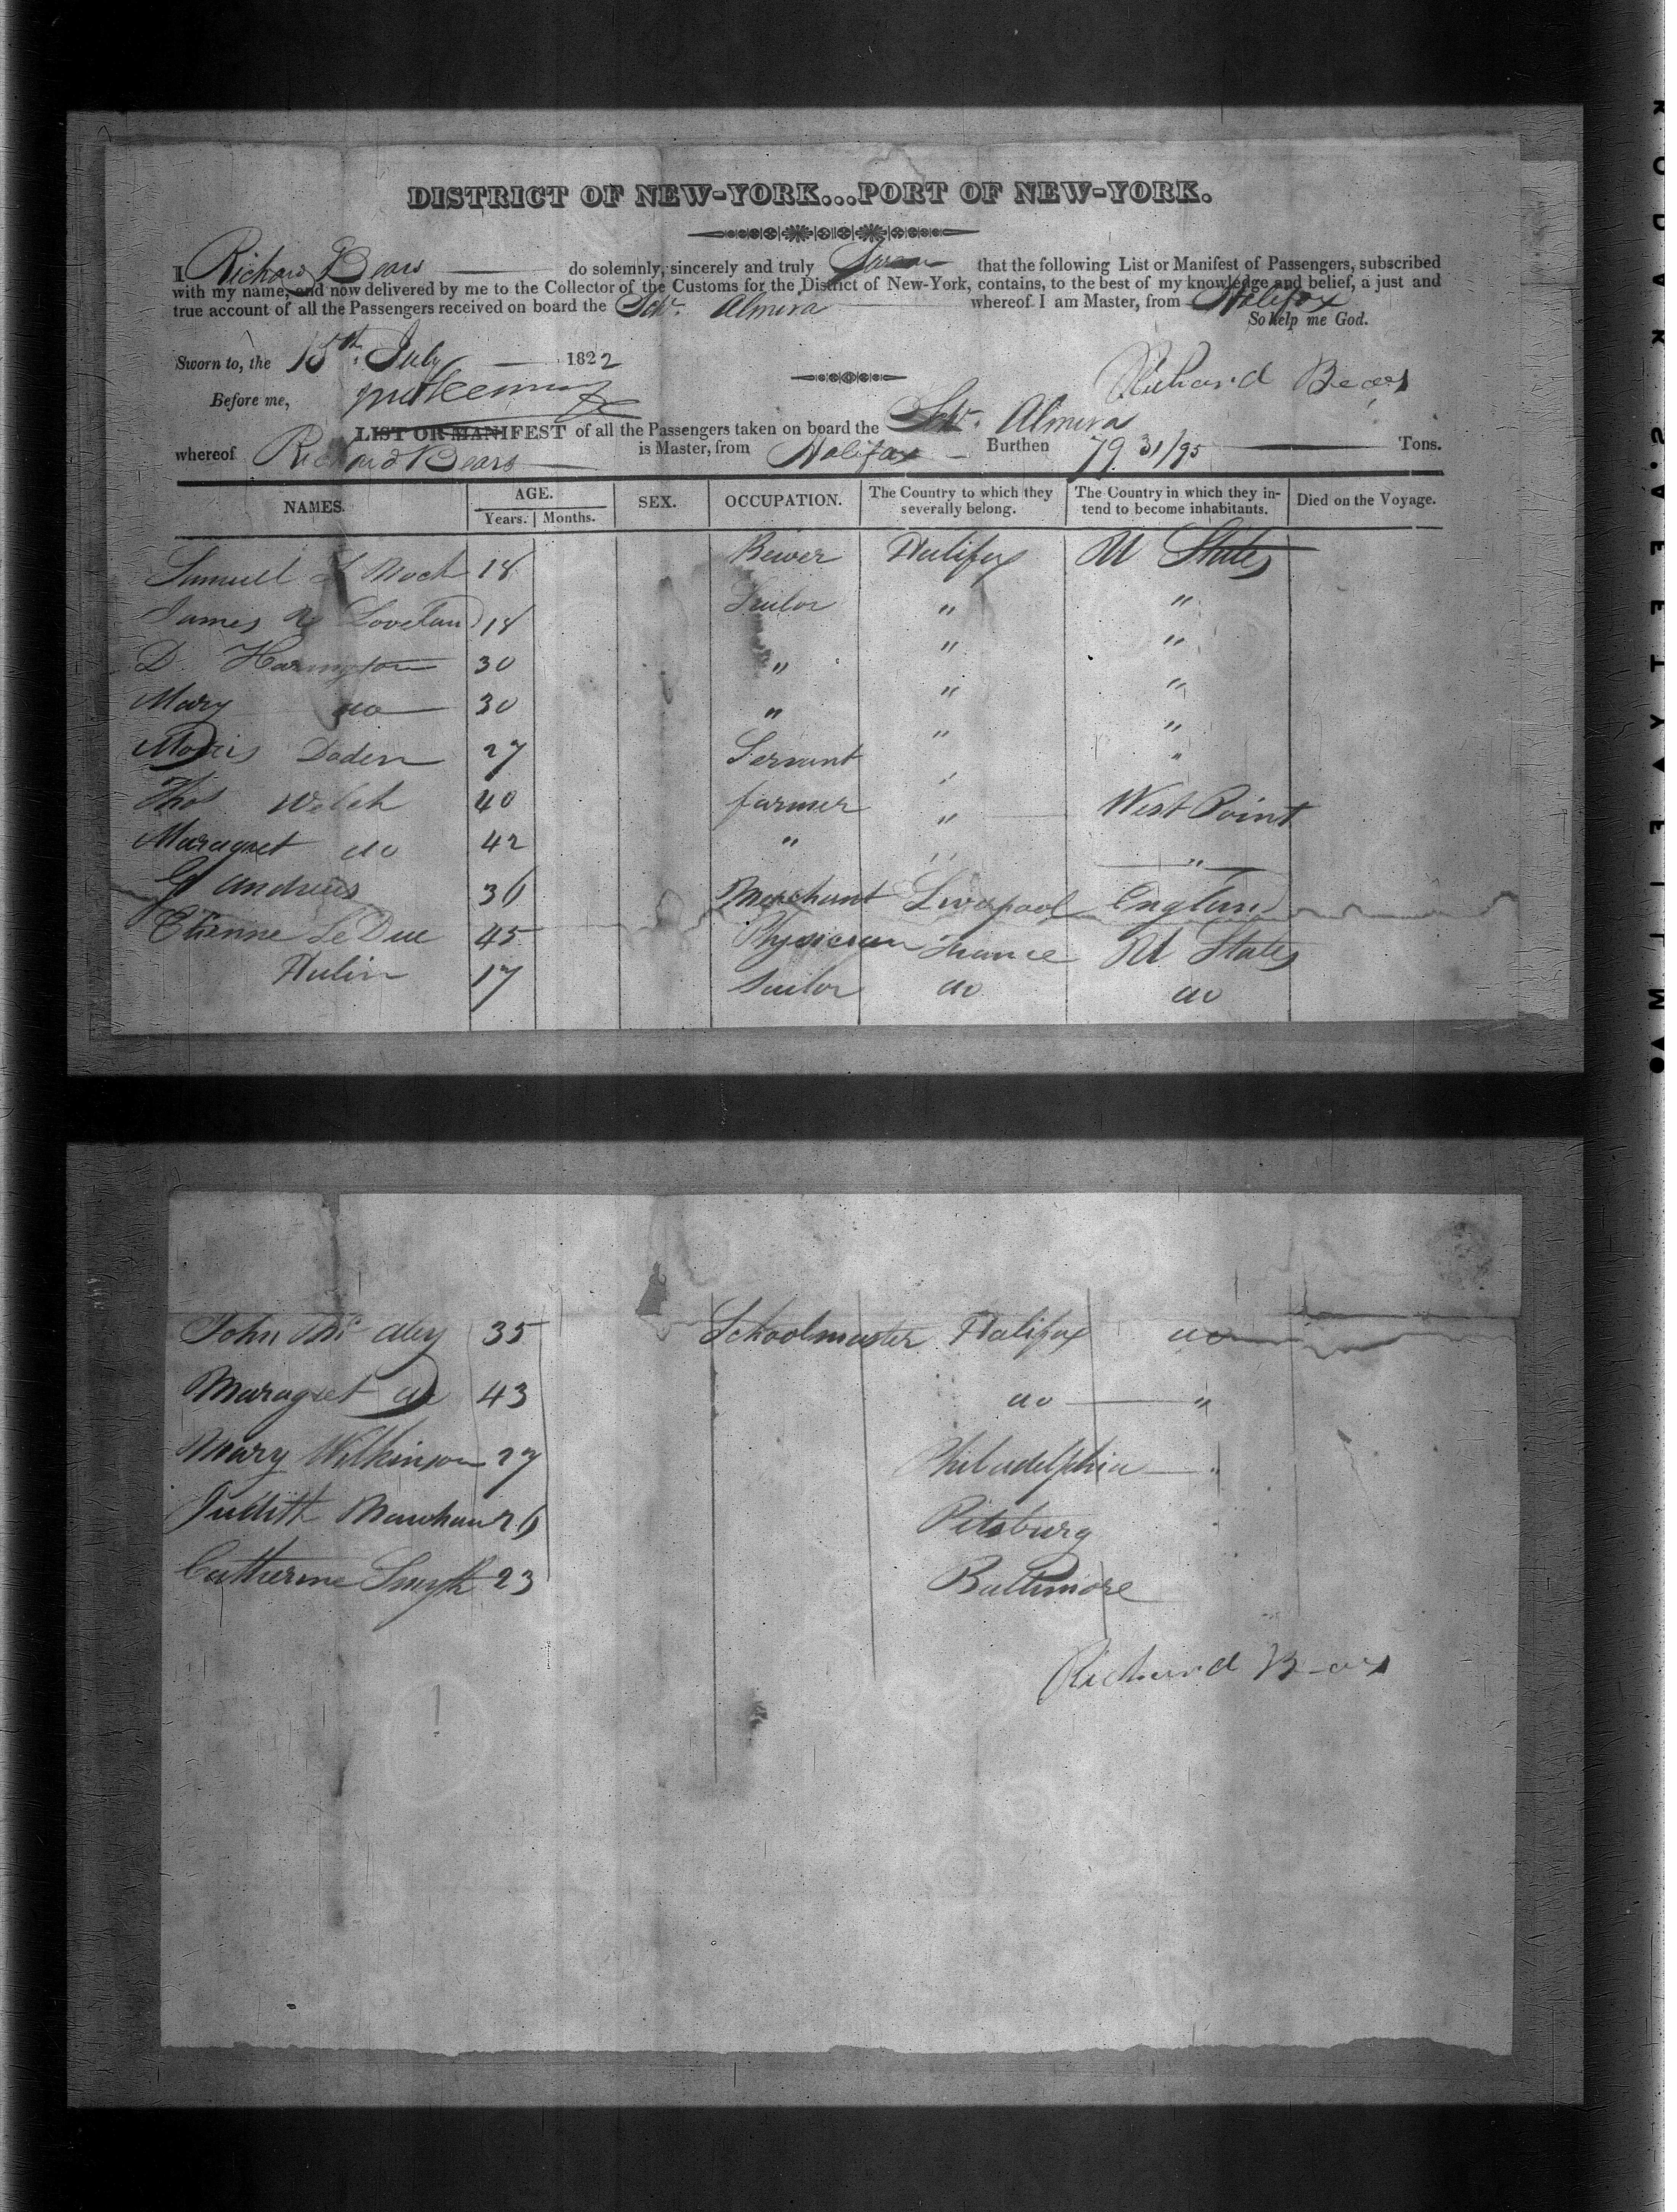 DISTRICT OF NEW-YORK...PORT OF NEW-YORK.
I Richard Bears do solemnly, sincerely and truly Swear that the following List or Manifest of Passengers, subscribed
with my name, and now delivered by me to the Collector of the Customs for the District of New-York, contains, to the best of my knowledge and belief, a just and
true account of all the Passengers received on board the Schr. Almira whereof I am Master, from Halifax
So help me God.
Sworn to, the 15th July 1822
Richard Bears
Before me,
LIST OR MANIFEST of all the Passengers taken on board the Schr. Almira
whereof Richard Bears is Master, from Halifax Burthen 79 31/95 Tons.
NAMES. AGE. SEX. OCCUPATION. The Country to which they severally belong. The Country in which they intend to become inhabitants. Died on the Voyage.
Years. Months.
Samuel 18 Halifax U States
James Loveland 18 " "
D. Harrington 30 " " "
Mary do 30 " " "
Doden 27 Servant " "
Thos Welch 40 farmer " West Point
Maragret do 42 " " "
G Andrews 36 Merchant Liverpool England
Etienne Le Duc 45 Physician France U States
Hulin 17 do do
John 35 Schoolmaster Halifax do
Maragret do 43 do "
Mary Wilkinson 27 Philadelphia "
Judith 26 Pitsburg
Catherine Smyth 23 Baltimore
Richard Bears